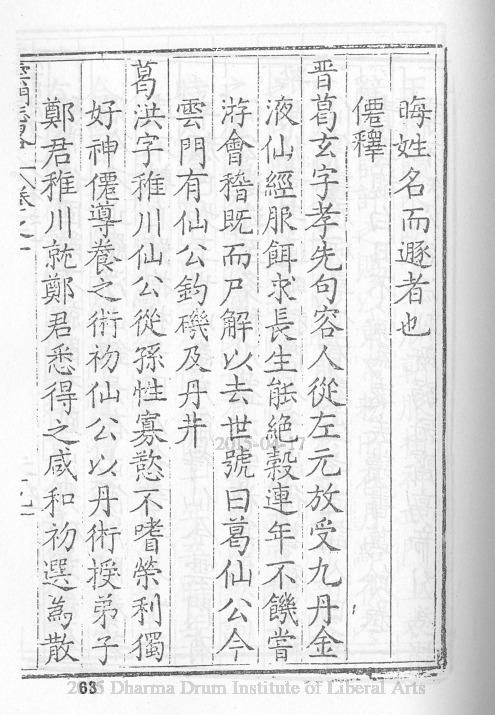 晦姓名而遯者也
僊釋
晉葛玄字孝先句容人從左元放受九丹金
液仙經服餌求長生能絶穀連年不饑嘗
游會稽既而尸解以去世號曰葛仙公今
雲門有仙公釣磯及丹井
葛洪字稚川仙公從孫性寡慾不嗜榮利獨
好神僊導養之術初仙公以丹術授弟子
鄭君稚川就鄭君悉得之咸和初選為散
63
2015-04-17
2015 Dharma Drum Institute of Liberal Arts